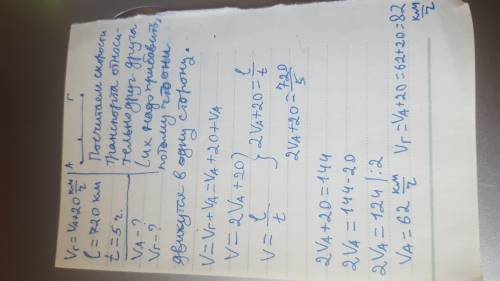 Vг = VA+20 км/ч
l = 720 км
t = 5 ч.
VA - ?
Vг - ?
A Г
Посчитаем скорости
транспорта относи-
тельно друг друга
(их надо прибавить,
потому что они
движутся в одну сторону.
V = Vг + VA = VA + 20 + VA
V = 2VA + 20
V = l/t
2VA + 20 = l/t
2VA + 20 = 720/5
2VA + 20 = 144
2VA = 144 - 20
2VA = 124 | : 2
VA = 62 км/ч Vг = VA + 20 = 62 + 20 = 82 км/ч